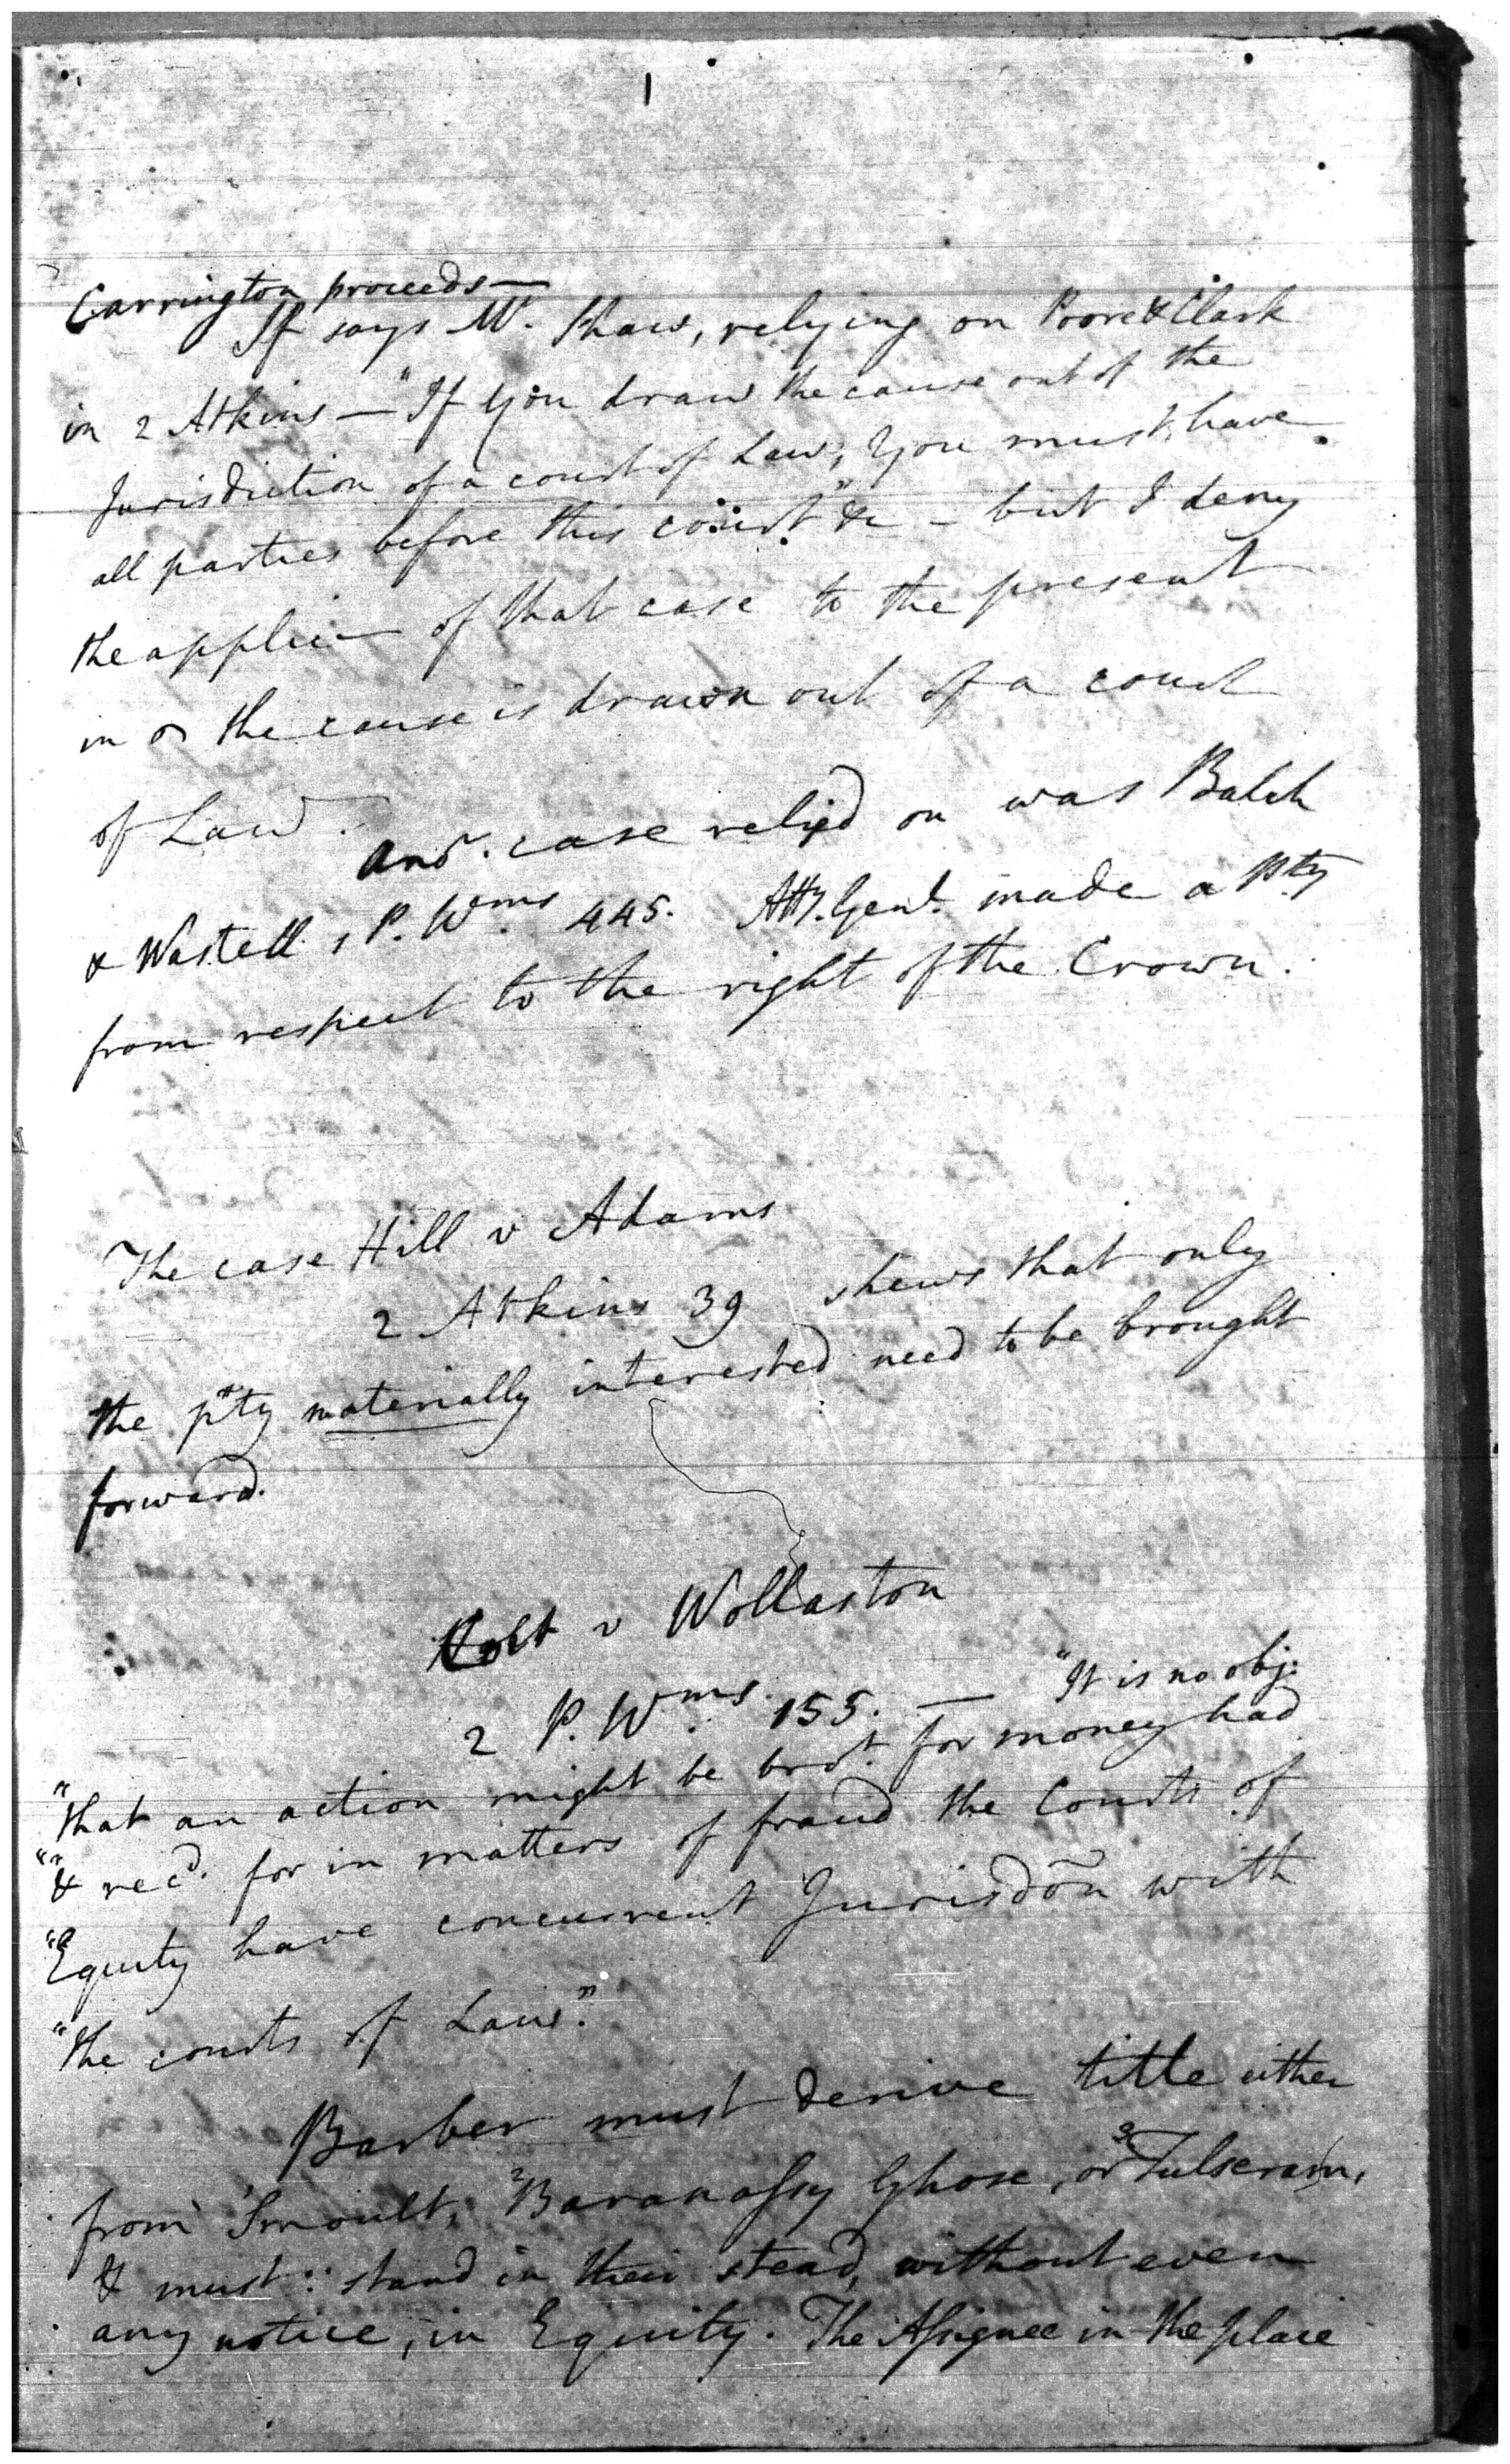 1
Carrington proceeds—
If says Mr. Shaw, relying on Poore & Clark
in 2 Atkins — "If you draw the cause out of the
Jurisdiction of a court of Law, you must have
all parties before this court" &c - but I deny
the applicn of that case to the present
in or the cause is drawn out of a court
of Law.
Anor. case relied on was Balch
& Wastell 1 P. Wms 445. Atty. Genl. made a pty
from respect to the right of the Crown.
The case Hill v Adams
2 Atkins 39 shews that only
the pty materially interested need to be brought
forward.
Colt v Wollaston
2 P. Wms. 155. — "It is no obj:
"that an action might be brot. for money had
"& recd. for in matters of fraud the Courts of
"Equity have concurrent Jurisdon with
"the courts of Law."
Barber must derive title either
from 1 Smoult, 2 Baranassy Ghose, or 3 Tulseram,
& must ∴ stand in their stead, without even
any notice, in Equity. The Assignee in the place